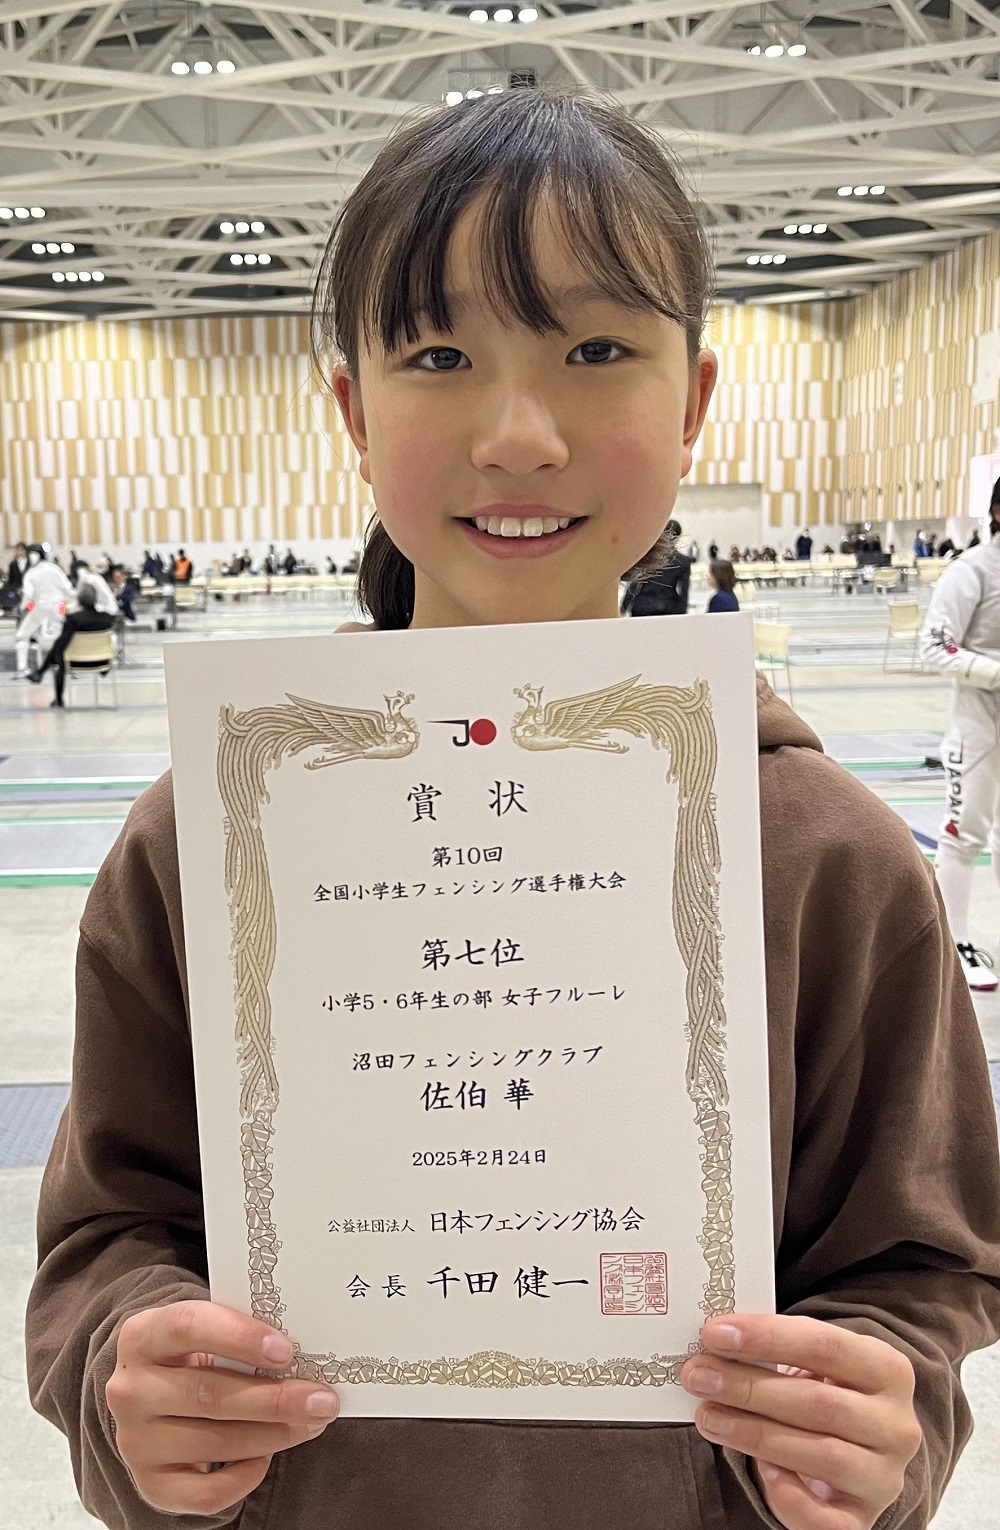 JO
賞 状
第10回
全国小学生フェンシング選手権大会
第七位
小学5・6年生の部 女子フルーレ
沼田フェンシングクラブ
佐伯 華
2025年2月24日
公益社団法人 日本フェンシング協会
会長 千田 健一
JAPAN